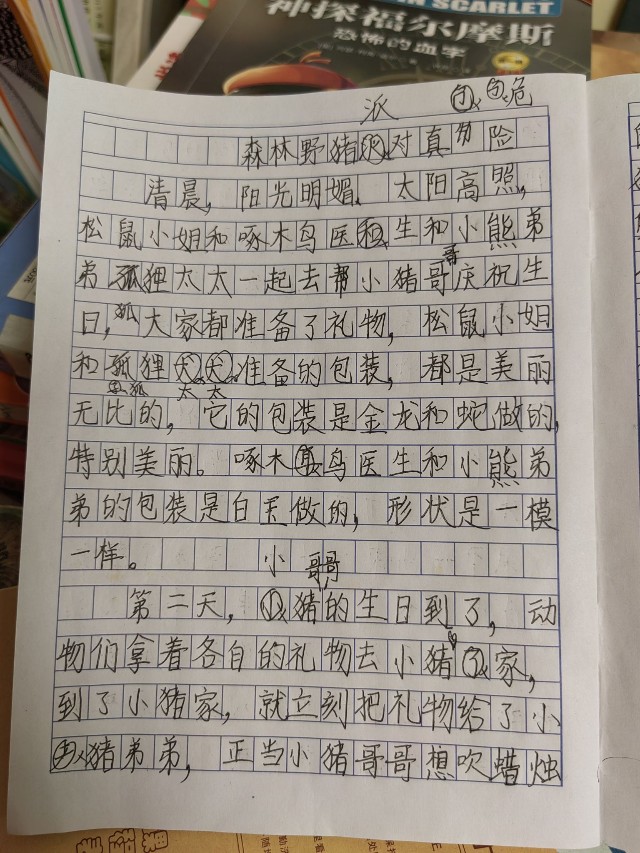 IN SCARLET
神探福尔摩斯
恐怖的血字
派 危
森林野猪对真的险
清晨，阳光明媚、太阳高照，
松鼠小姐和啄木鸟医生和小熊弟
弟狐狸太太一起去帮小猪哥哥庆祝生
日，大家都准备了礼物，松鼠小姐
和狐狸太太准备的包装，都是美丽
无比的，它的包装是金龙和蛇做的，
特别美丽。啄木鸟医生和小熊弟
弟的包装是白玉做的，形状是一模
一样。
第二天，小猪哥哥的生日到了，动
物们拿着各自的礼物去小猪家，
到了小猪家，就立刻把礼物给了小
猪弟弟，正当小猪哥哥想吹蜡烛